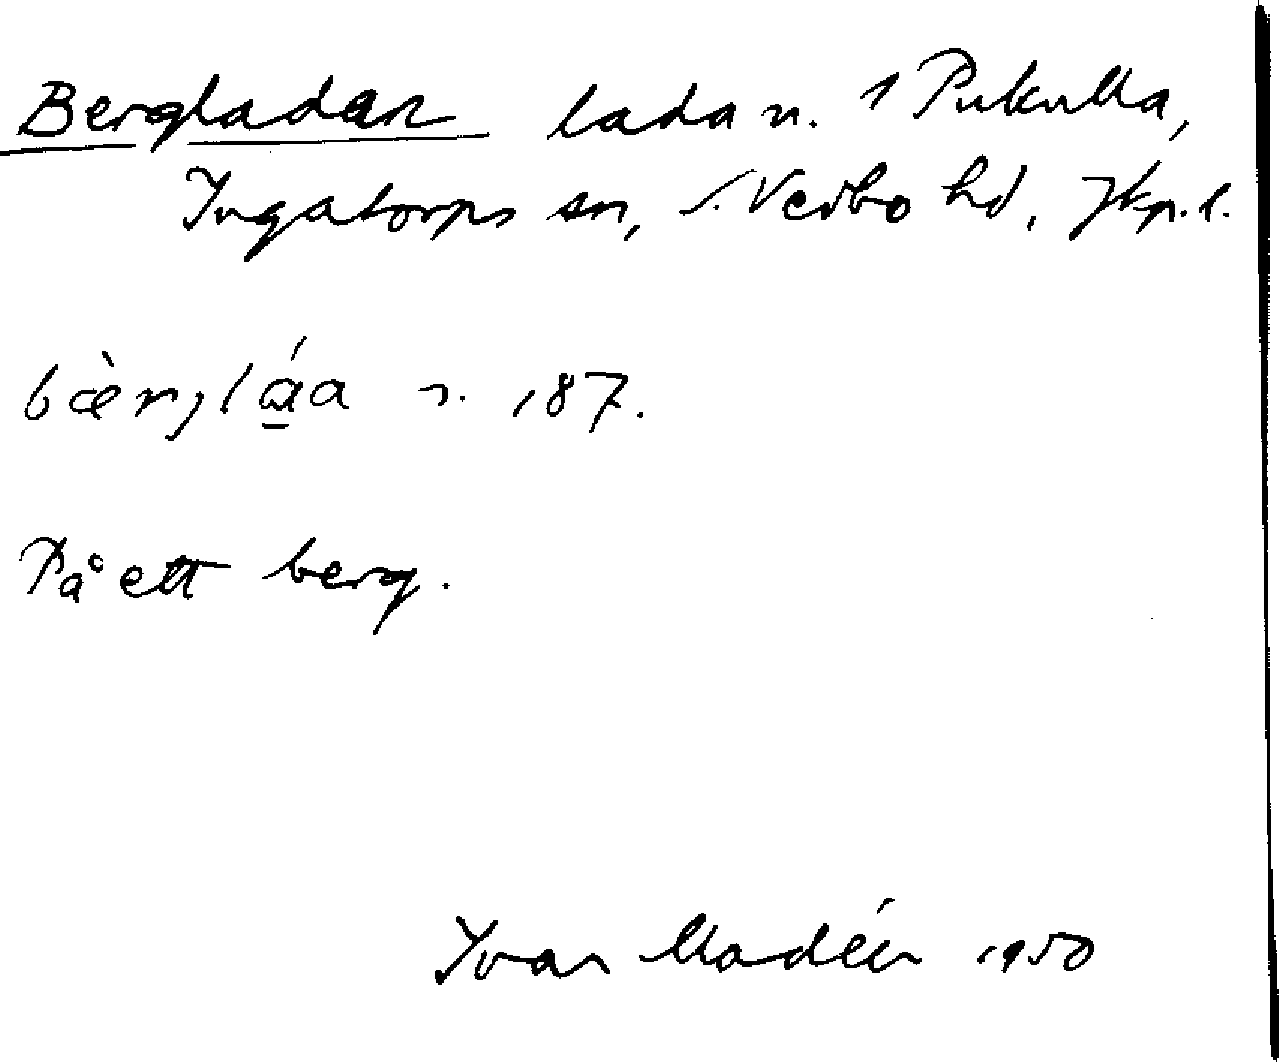 Bergladan lada n. 1 Pukulla,
Ingatorps sn, S. Vedbo hd, Jkp. l.
bær̀jlá̱a n. 187.
På ett berg.
Ivar Modéer 1950